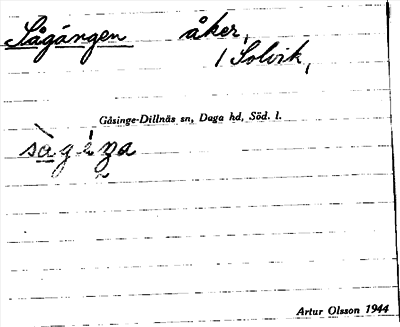 Sågången åker,
/ Solvik,
Gåsinge-Dillnäs sn, Daga hd, Söd. l.
Artur Olsson 1944